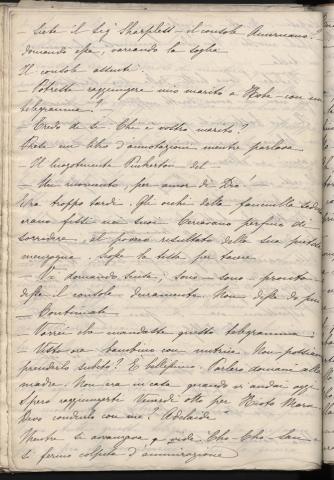 — Siete il Sig Sharpless — il console Americano?
domandò essa, varcando la soglia
Il console assentì
— Potreste raggiungere mio marito a Kobe — con un
telegramma?
— Credo di sì Chi è vostro marito?
Prese un libro d'annotazioni mentre parlava
— Il luogotenente Pinkerton del —
— Un momento, per amor di Dio!
Era troppo tardi. Gli occhi della
erano fissi nei suoi Cercavano perfino di
sorridere, al povero resultato della sua pietosa
menzogna. la testa per tacere
— Vi domando scusa; sono — sono — pronto —
disse il console duramente. Non disse di più
— Continuate
— Vorrei che mandaste questo telegramma:
— Visto ora bambino con nutrice. Non possiamo
prenderlo subito? È bellissimo. Parlerò domani alla
madre. Non era in casa quando vi andai oggi
Spero raggiungerti Venerdì otto per Kioto Maru.
Devo condurlo con me? Adelaide
Mentre si avanzava, vide Cho-Cho-San e
si fermò colpita d'ammirazione